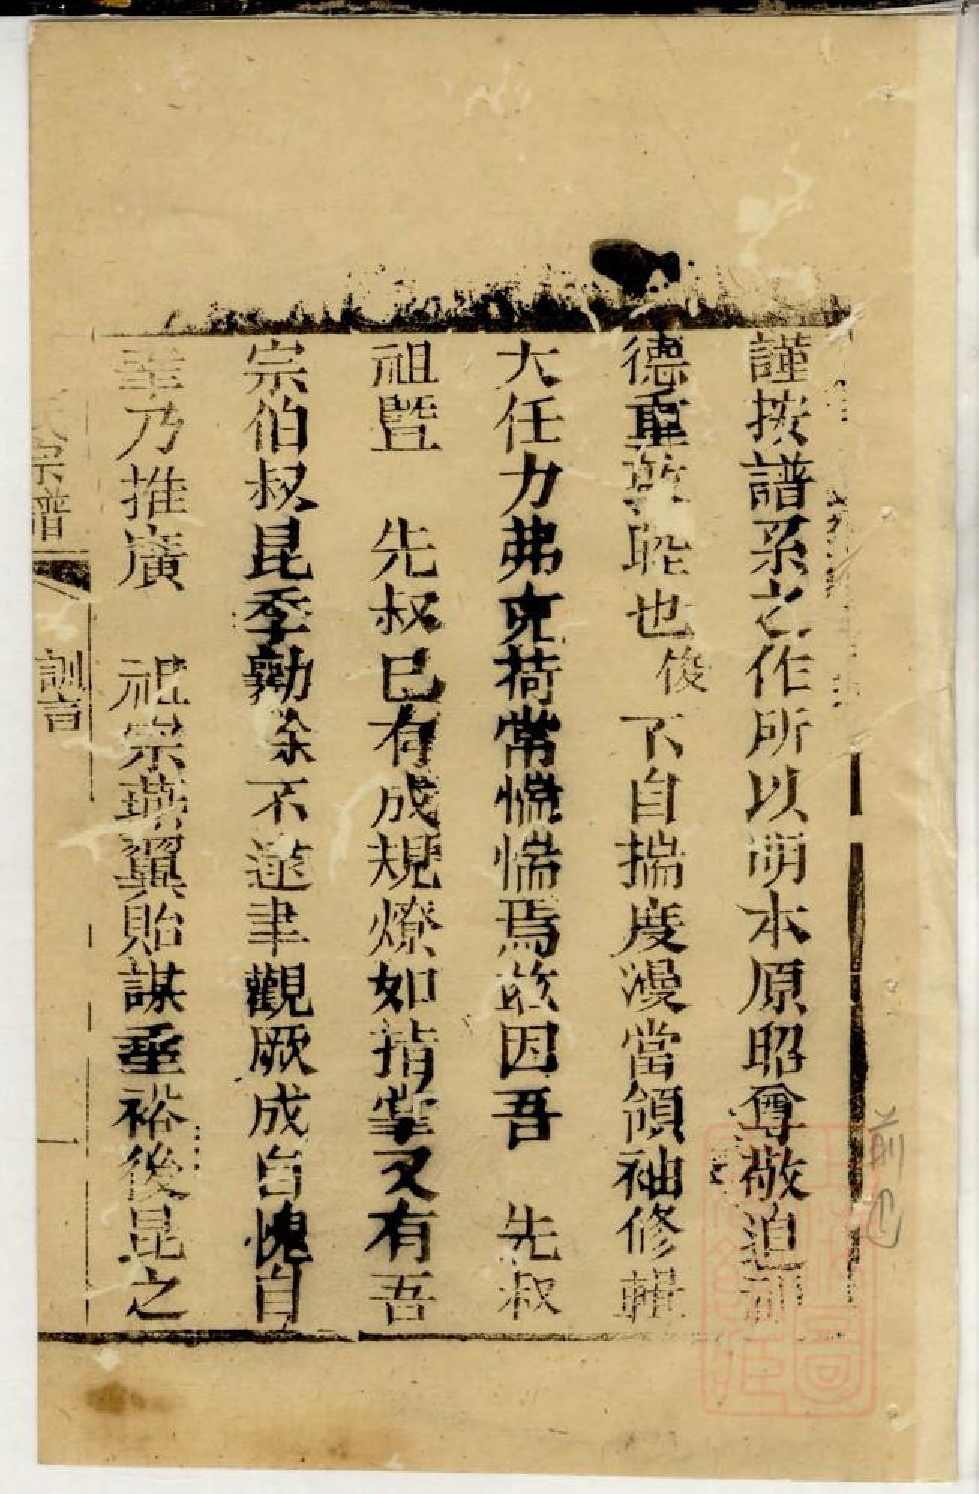 謹按譜系之作所以溯本原昭尊敬迫祖
德重敦睦也俊不自揣度漫當領袖修輯
大任力弗克荷常惴惴焉故因吾 先叔
祖暨 先叔已有成規燎如指掌又有吾
宗伯叔昆季勷除不逮聿觀厥成自愧自
乃推廣 祖宗燕翼貽謀垂裕後昆之
氏宗譜 訓言 一
前